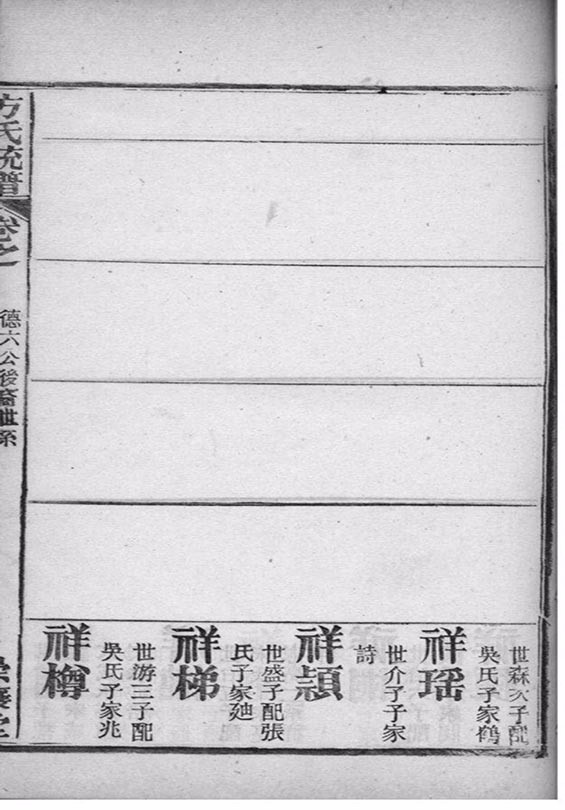 祥瑶
世森次子配
吳氏子家鶴
祥穎
世介子子家
詩
祥梯
世盛子配張
氏子家廸
祥樽
世游三子配
吳氏子家兆
方氏統譜
卷之
德六公後裔世系